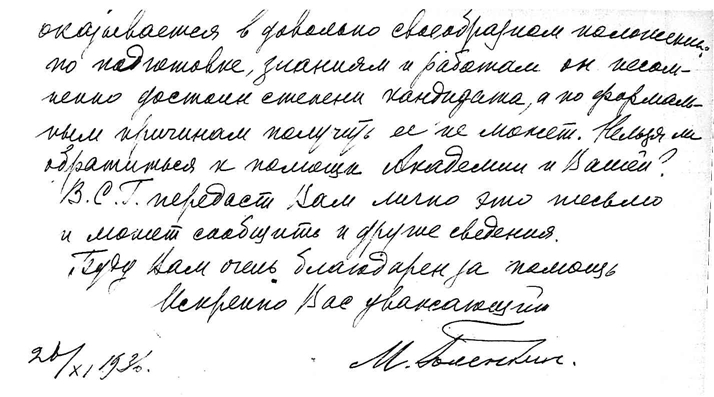 оказывается в довольно своеобразном положении:
по подготовке, знаниям и работам он несом-
ненно достоин степени кандидата, а по формаль-
ным причинам получить ее не может. Нельзя ли
обратиться к помощи Академии и Вашей?
В.С.Г. передаст Вам лично это письмо
и может сообщить и другие сведения.
Буду Вам очень благодарен за помощь
Искренно Вас уважающий
М. Голенкин.